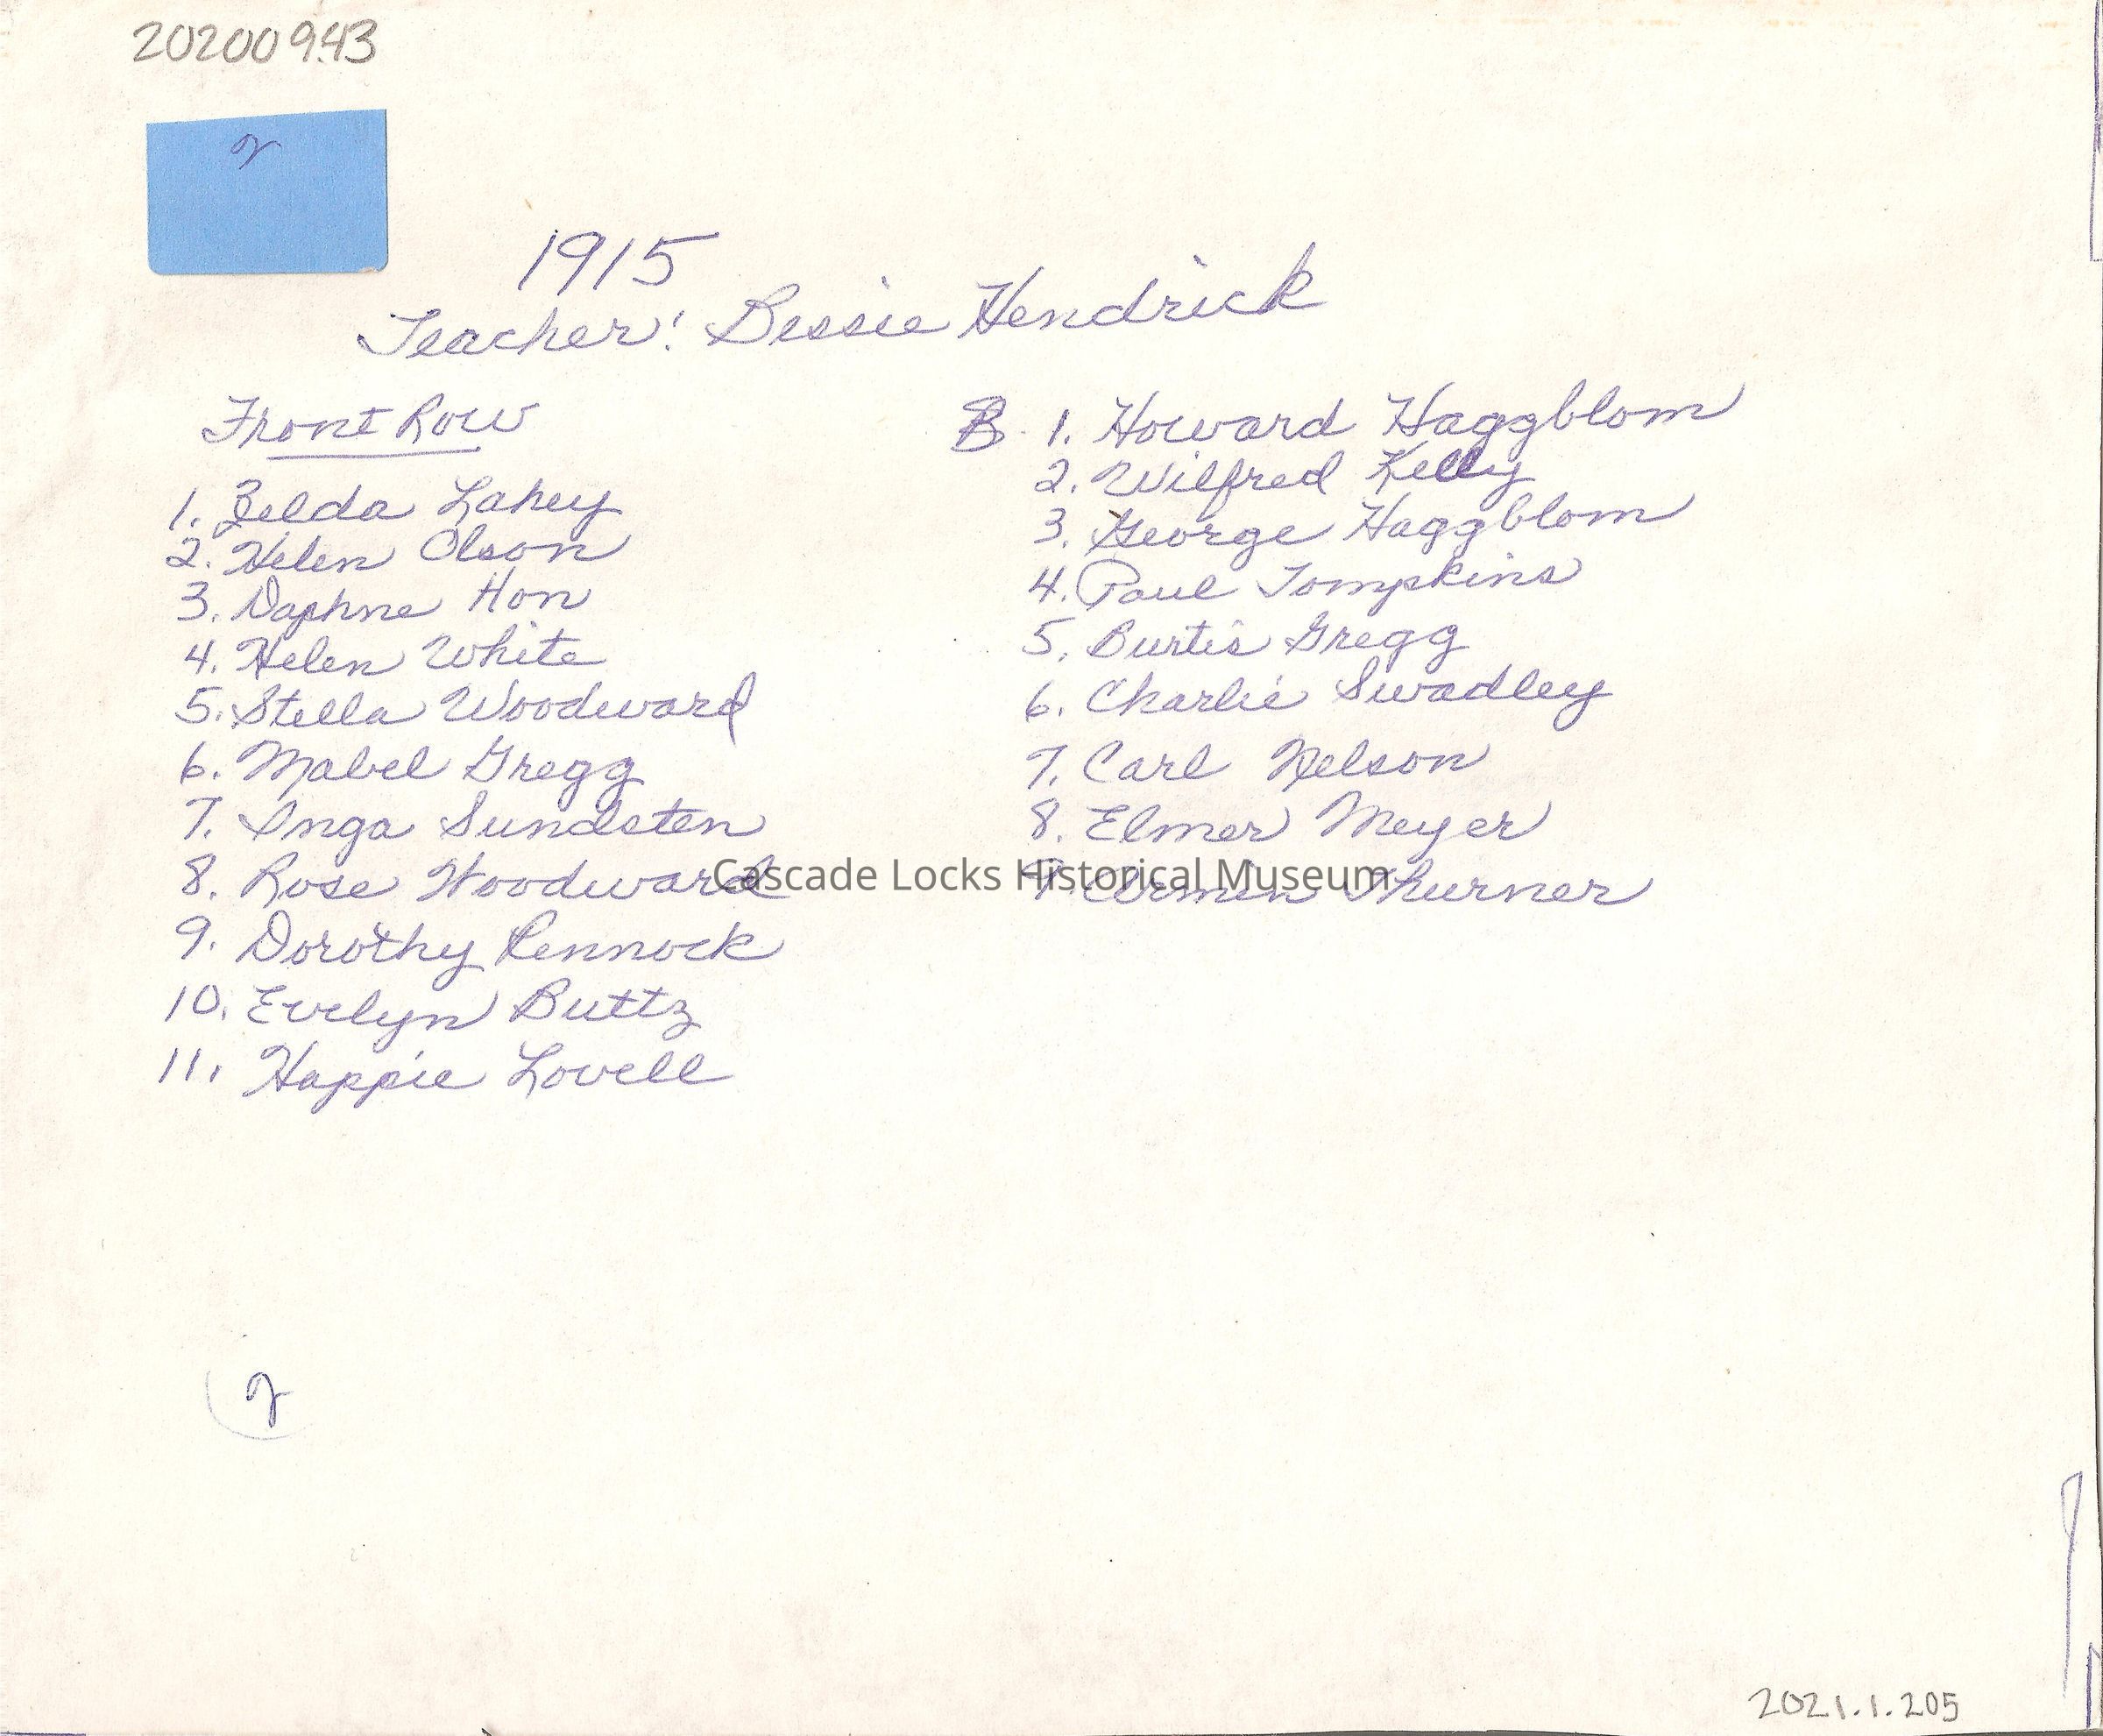 2020093.43
2
1915
Teacher: Bessie Hendrick
Front Row
1. Zelda Lahey
2. Helen Olson
3. Daphne Hon
4. Helen White
5. Stella Woodward
6. Mabel Gregg
7. Inga Sundsten
8. Rose Woodward
9. Dorothy Pennock
10. Evelyn Buttz
11. Happie Lovell
B 1. Howard Haggblom
2. Wilfred Kelly
3. George Haggblom
4. Paul Tompkins
5. Burtis Gregg
6. Charlie Swadley
7. Carl Nelson
8. Elmer Meyer
9. Armin Thurner
Cascade Locks Historical Museum
2
2021.1.205